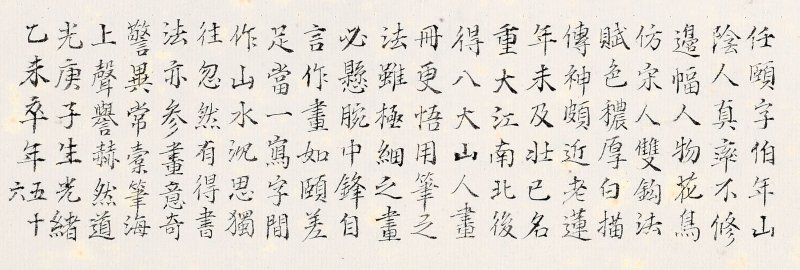 任頤字伯年山
陰人真率不修
邊幅人物花鳥
仿宋人雙鈎法
賦色穠厚白描
傳神頗近老蓮
年未及壯已名
重大江南北後
得八大山人畫
冊更悟用筆之
法雖極細之畫
必懸腕中鋒自
言作畫如頤差
足當一寫字間
作山水沉思獨
往忽然有得書
法亦参畫意奇
警異常橐筆海
上聲譽赫然道
光庚子生光緒
乙未卒年五十
六